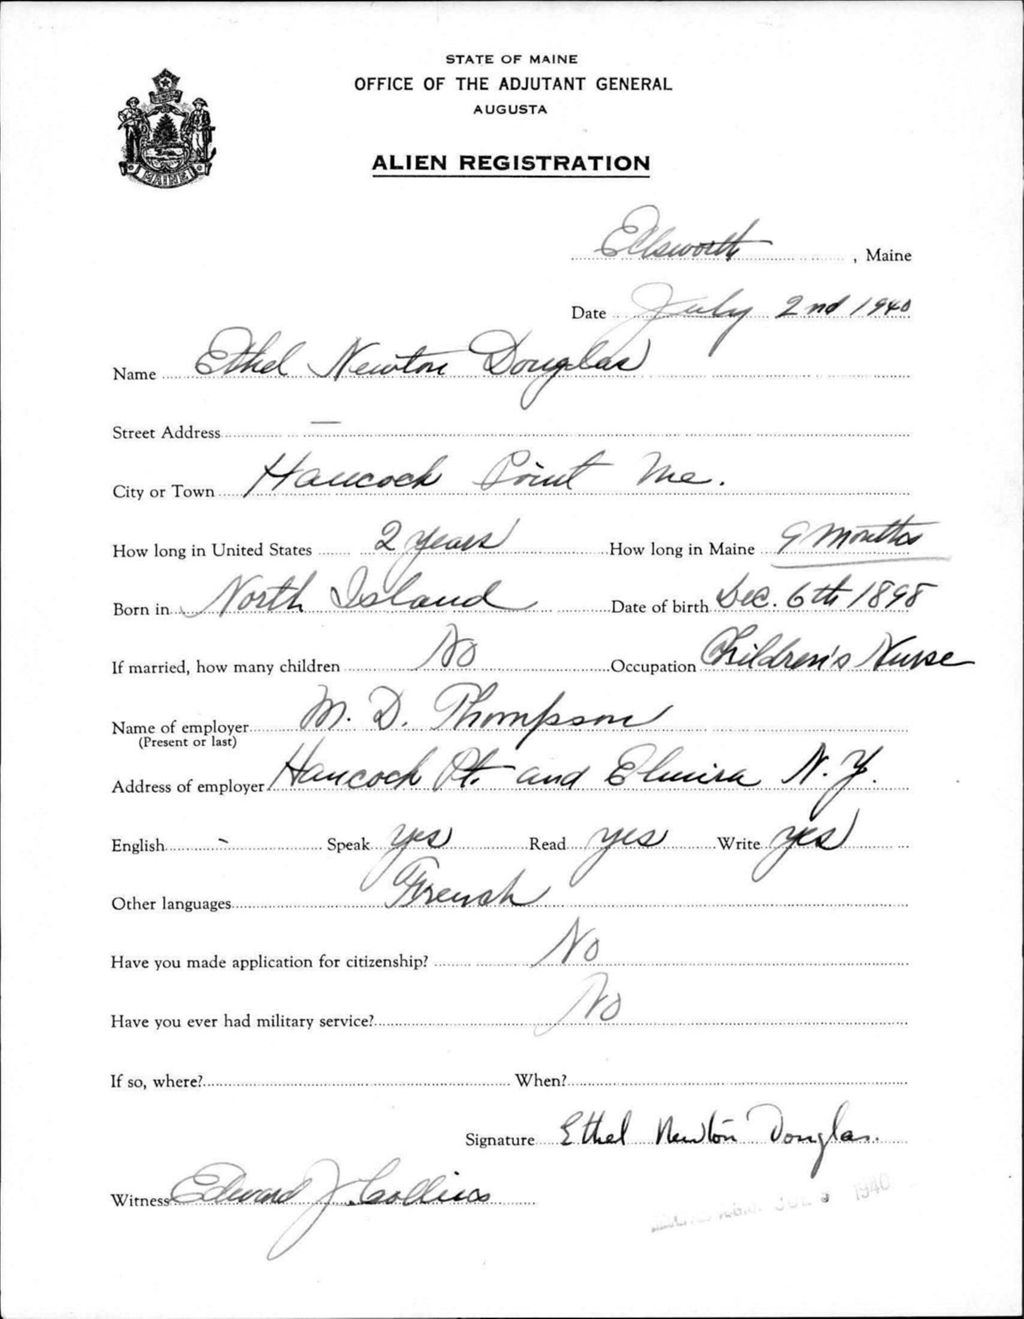 STATE OF MAINE
OFFICE OF THE ADJUTANT GENERAL
AUGUSTA
ALIEN REGISTRATION
MAINE
Ellsworth, Maine
Date July 2nd 1940
Name Ethel Newton Douglas
Street Address —
City or Town Hancock Point Me.
How long in United States 2 years How long in Maine 9 Months
Born in North Island Date of birth Dec. 6th 1898
If married, how many children No Occupation Children's Nurse
Name of employer M. D. Thompson
(Present or last)
Address of employer Hancock Pt. and Elmira N.Y.
English Speak yes Read yes Write yes
Other languages French
Have you made application for citizenship? No
Have you ever had military service? No
If so, where? When?
Signature Ethel Newton Douglas.
Witness Edward J. Collins
1940